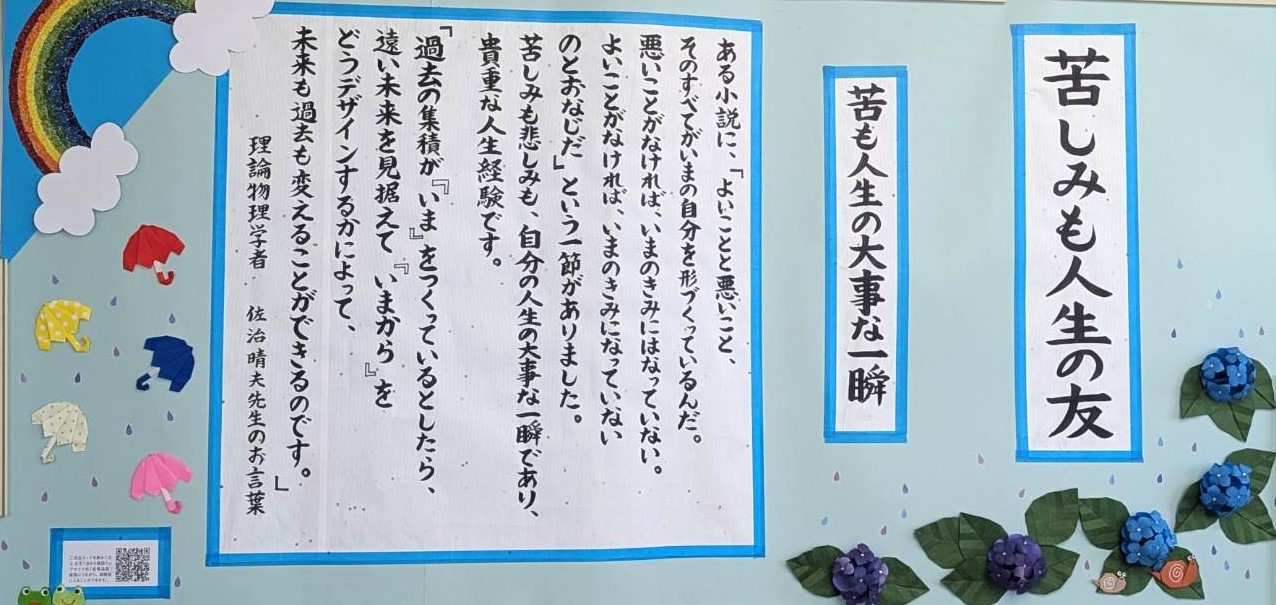 苦しみも人生の友
苦も人生の大事な一瞬
ある小説に、「よいことと悪いこと、
そのすべてがいまの自分を形づくっているんだ。
悪いことがなければ、いまのきみにはなっていない。
よいことがなければ、いまのきみになっていない
のとおなじだ」という一節がありました。
苦しみも悲しみも、自分の人生の大事な一瞬であり、
貴重な人生経験です。
「過去の集積が『いま』をつくっているとしたら、
遠い未来を見据えて『いまから』を
どうデザインするかによって、
未来も過去も変えることができるのです。」
理論物理学者 佐治晴夫先生のお言葉